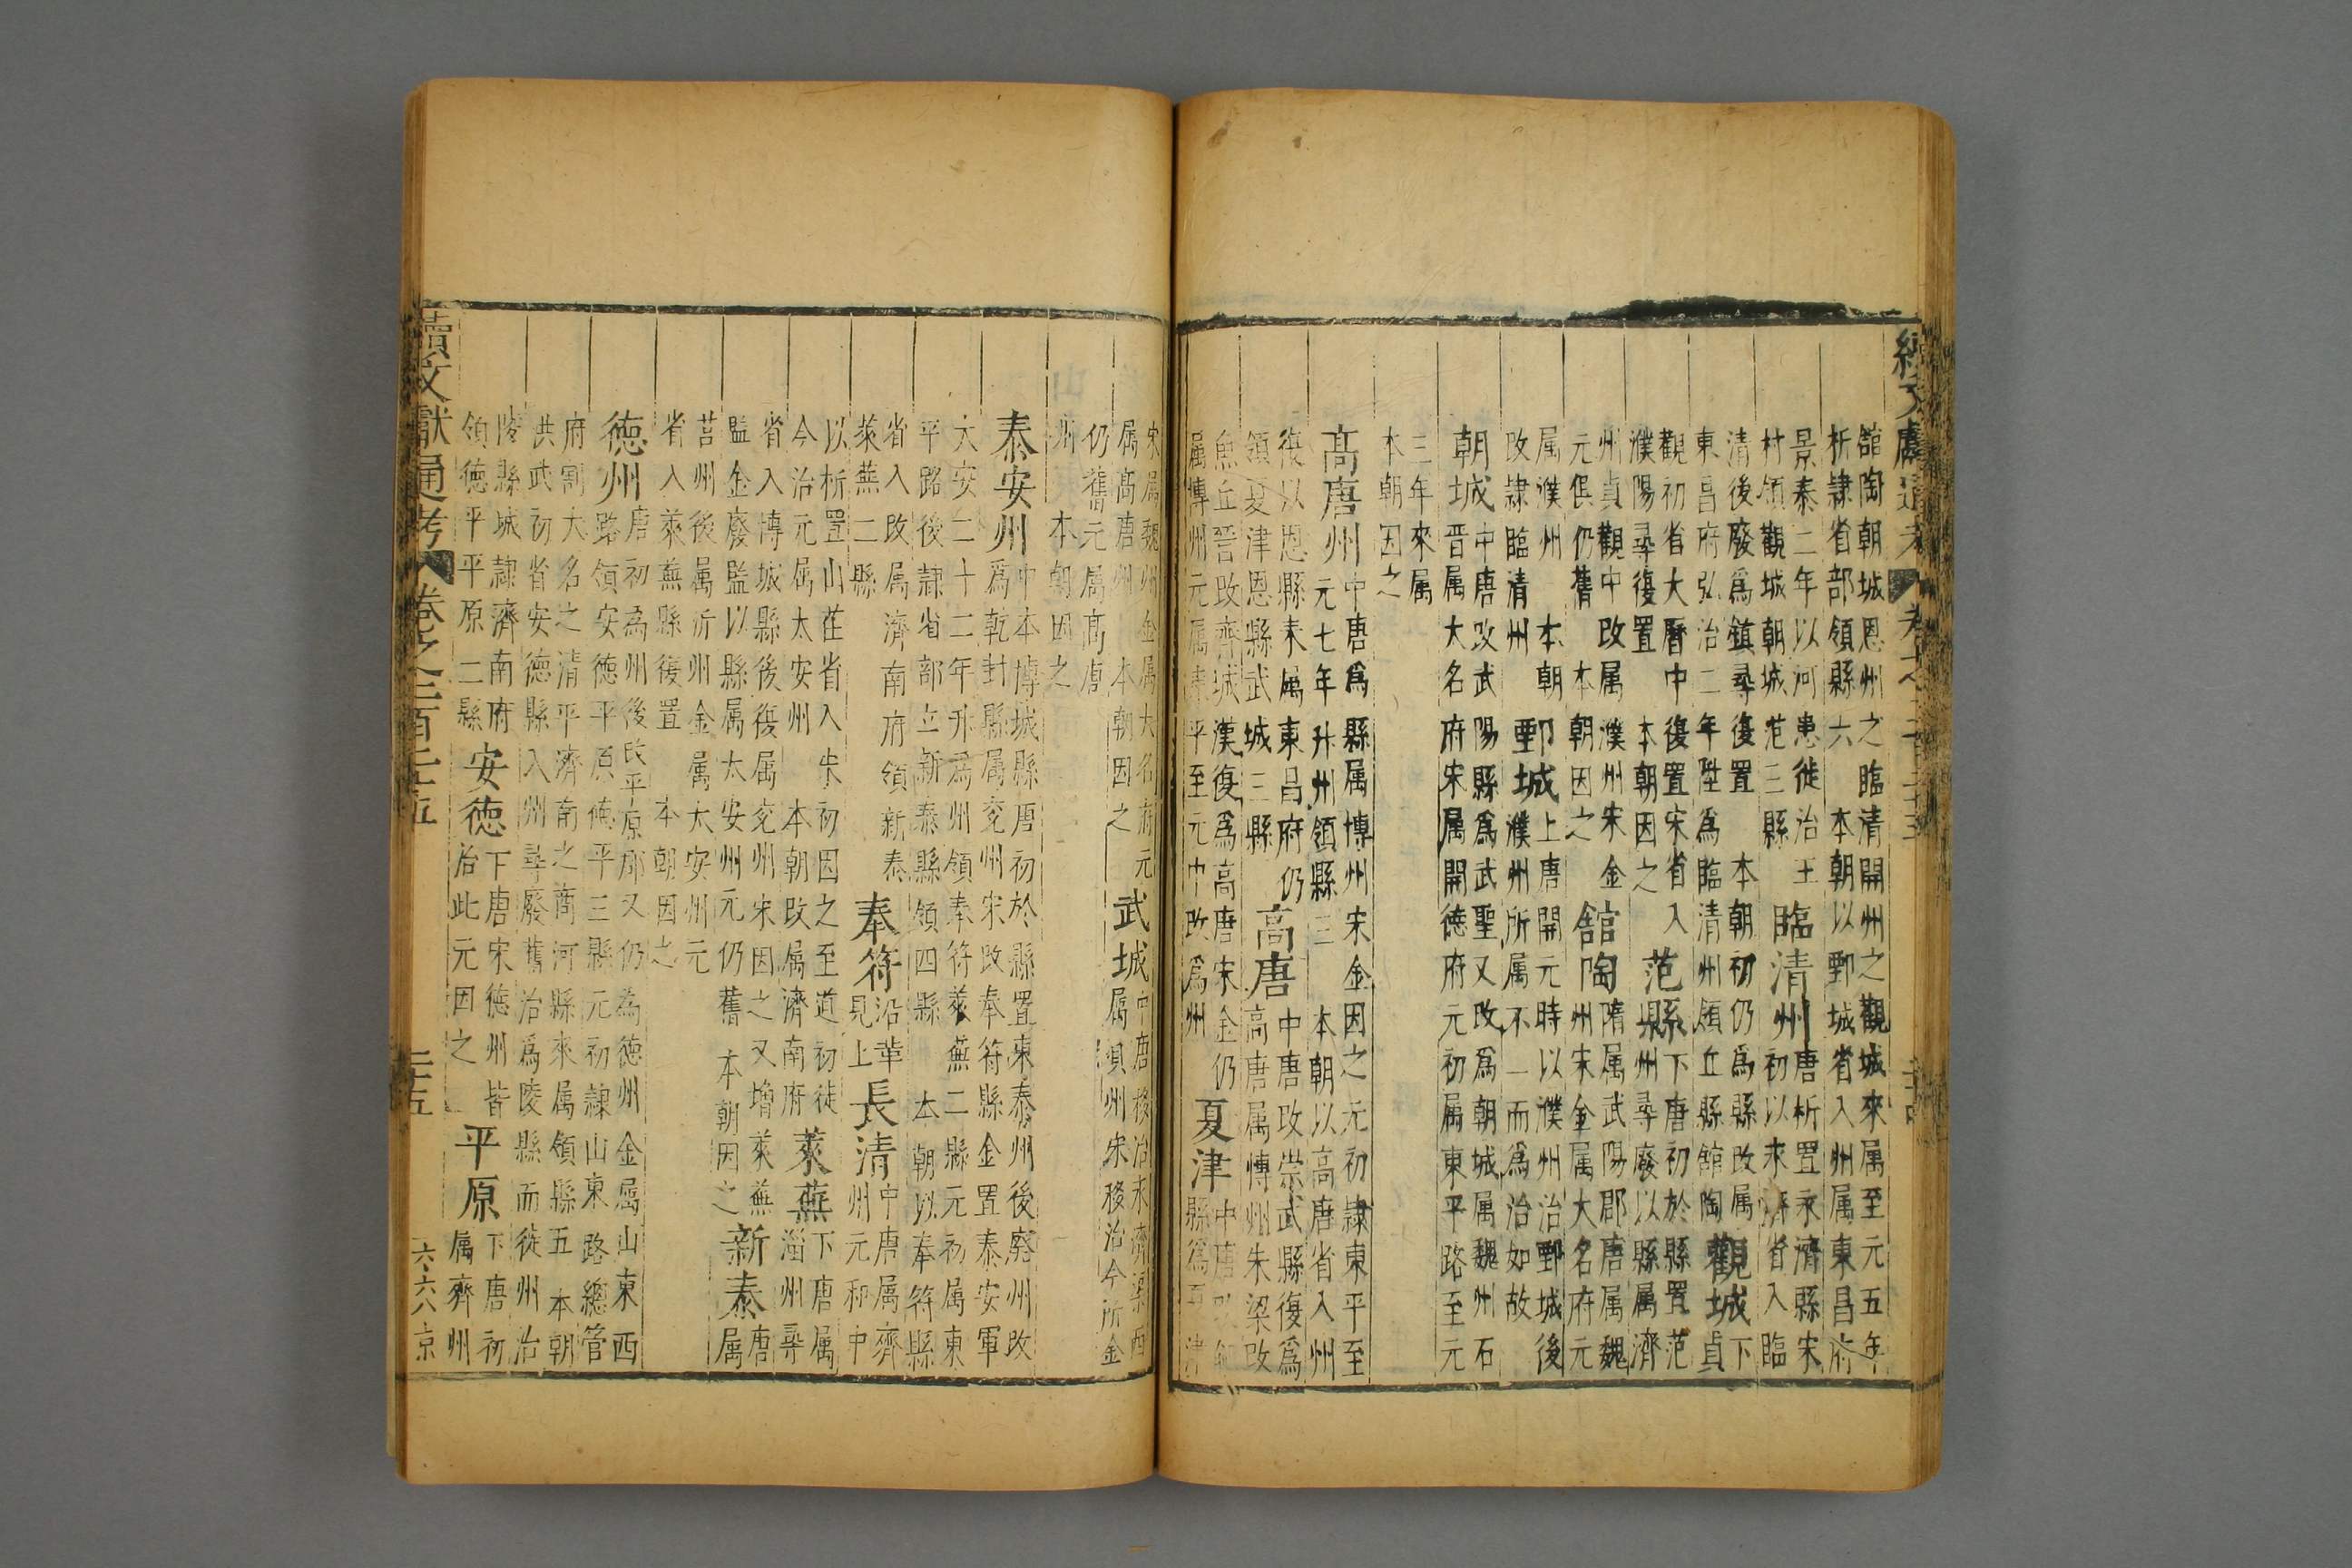 舘陶朝城恩州之臨清開州之觀城來属至元五年
析隷省部領縣六 本朝以鄄城省入州属東昌府
景泰二年以河患徙治王
村領觀城朝城范三縣
臨清州
唐析置永濟縣宋
初以來濟省入臨
清後廢爲鎮尋復置 本朝初仍爲縣改属
東昌府弘治二年陞爲臨清州領丘縣舘陶
觀城
下
貞
觀初省大曆中復置宋省入
濮陽尋復置 本朝因之
范縣
下唐初於縣置范
縣州尋廢以縣属濟
州貞觀中改属濮州宋金
元倶仍舊 本朝因之
舘陶
隋属武陽郡唐属魏
州宋金属大名府元
属濮州 本朝
改隷臨清州
鄄城
上唐開元時以濮州治鄄城後
濮州所属不一而爲治如故
朝城
中唐改武陽縣爲武聖又改爲朝城属魏州石
晋属大名府宋属開德府元初属東平路至元
三年來属
本朝因之
髙唐州
中唐爲縣属博州宋金因之元初隷東平至
元七年升州領縣三 本朝以高唐省入州
復以恩縣来属東昌府仍
領夏津恩縣武城三縣
高唐
中唐改崇武縣復爲
高唐属博州朱梁改
魚丘晉改齊城漢復爲高唐宋金仍
属博州元属東平至元中改爲州
夏津
中唐改
縣爲夏津
宋属魏州金属大名府元
属髙唐州 本朝因之
武城
中唐移治永濟渠西
属貝州宋移治今所金
仍舊元属髙唐
州 本朝因之
泰安州
中本博城縣唐初於縣置東泰州後廢州改
爲乾封縣属兖州宋改奉符縣金置泰安軍
大安二十二年升爲州領奉符萊蕪二縣元初属東
平路後隷省部立新泰縣領四縣 本朝以奉符縣
省入改属濟南府領新泰
萊蕪二縣
奉符
沿革
見上
長清
中唐属齊
州元和中
以析置山茌省入宋初因之至道初徒
今治元属太安州 本朝改属濟南府
萊蕪
下唐属
淄州尋
省入博城縣後復属兖州宋因之又增萊蕪
監金廢監以縣属太安州元仍舊 本朝因之
新泰
唐
属
莒州後属沂州金属大安州元
省入萊蕪縣復置 本朝因之
德州
唐初為州後改平原郡又仍為德州金属山東西
路領安德平原德平三縣元初隷山東路總管
府割大名之清平濟南之商河縣來属領縣五 本朝
洪武初省安德縣入州尋廢舊治爲陵縣而徙州治
陵縣城隷濟南府
領德平平原二縣
安德
下唐宋德州皆
治此元因之
平原
下唐初
属齊州
續文獻通考 卷之二百二十五 二十五
六六八 京